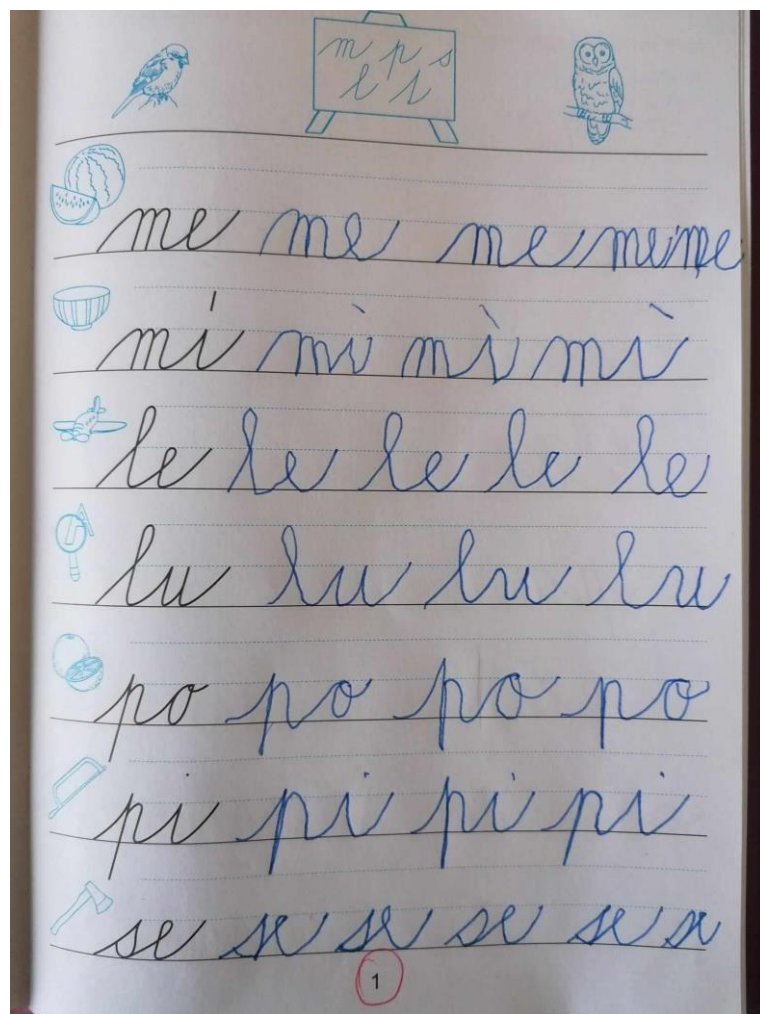 m p s
l
me me me me me
mí mì mì mì
le le le le le
lu lu lu lu
po po po po
pi pi pi pi
se se se se se se
1